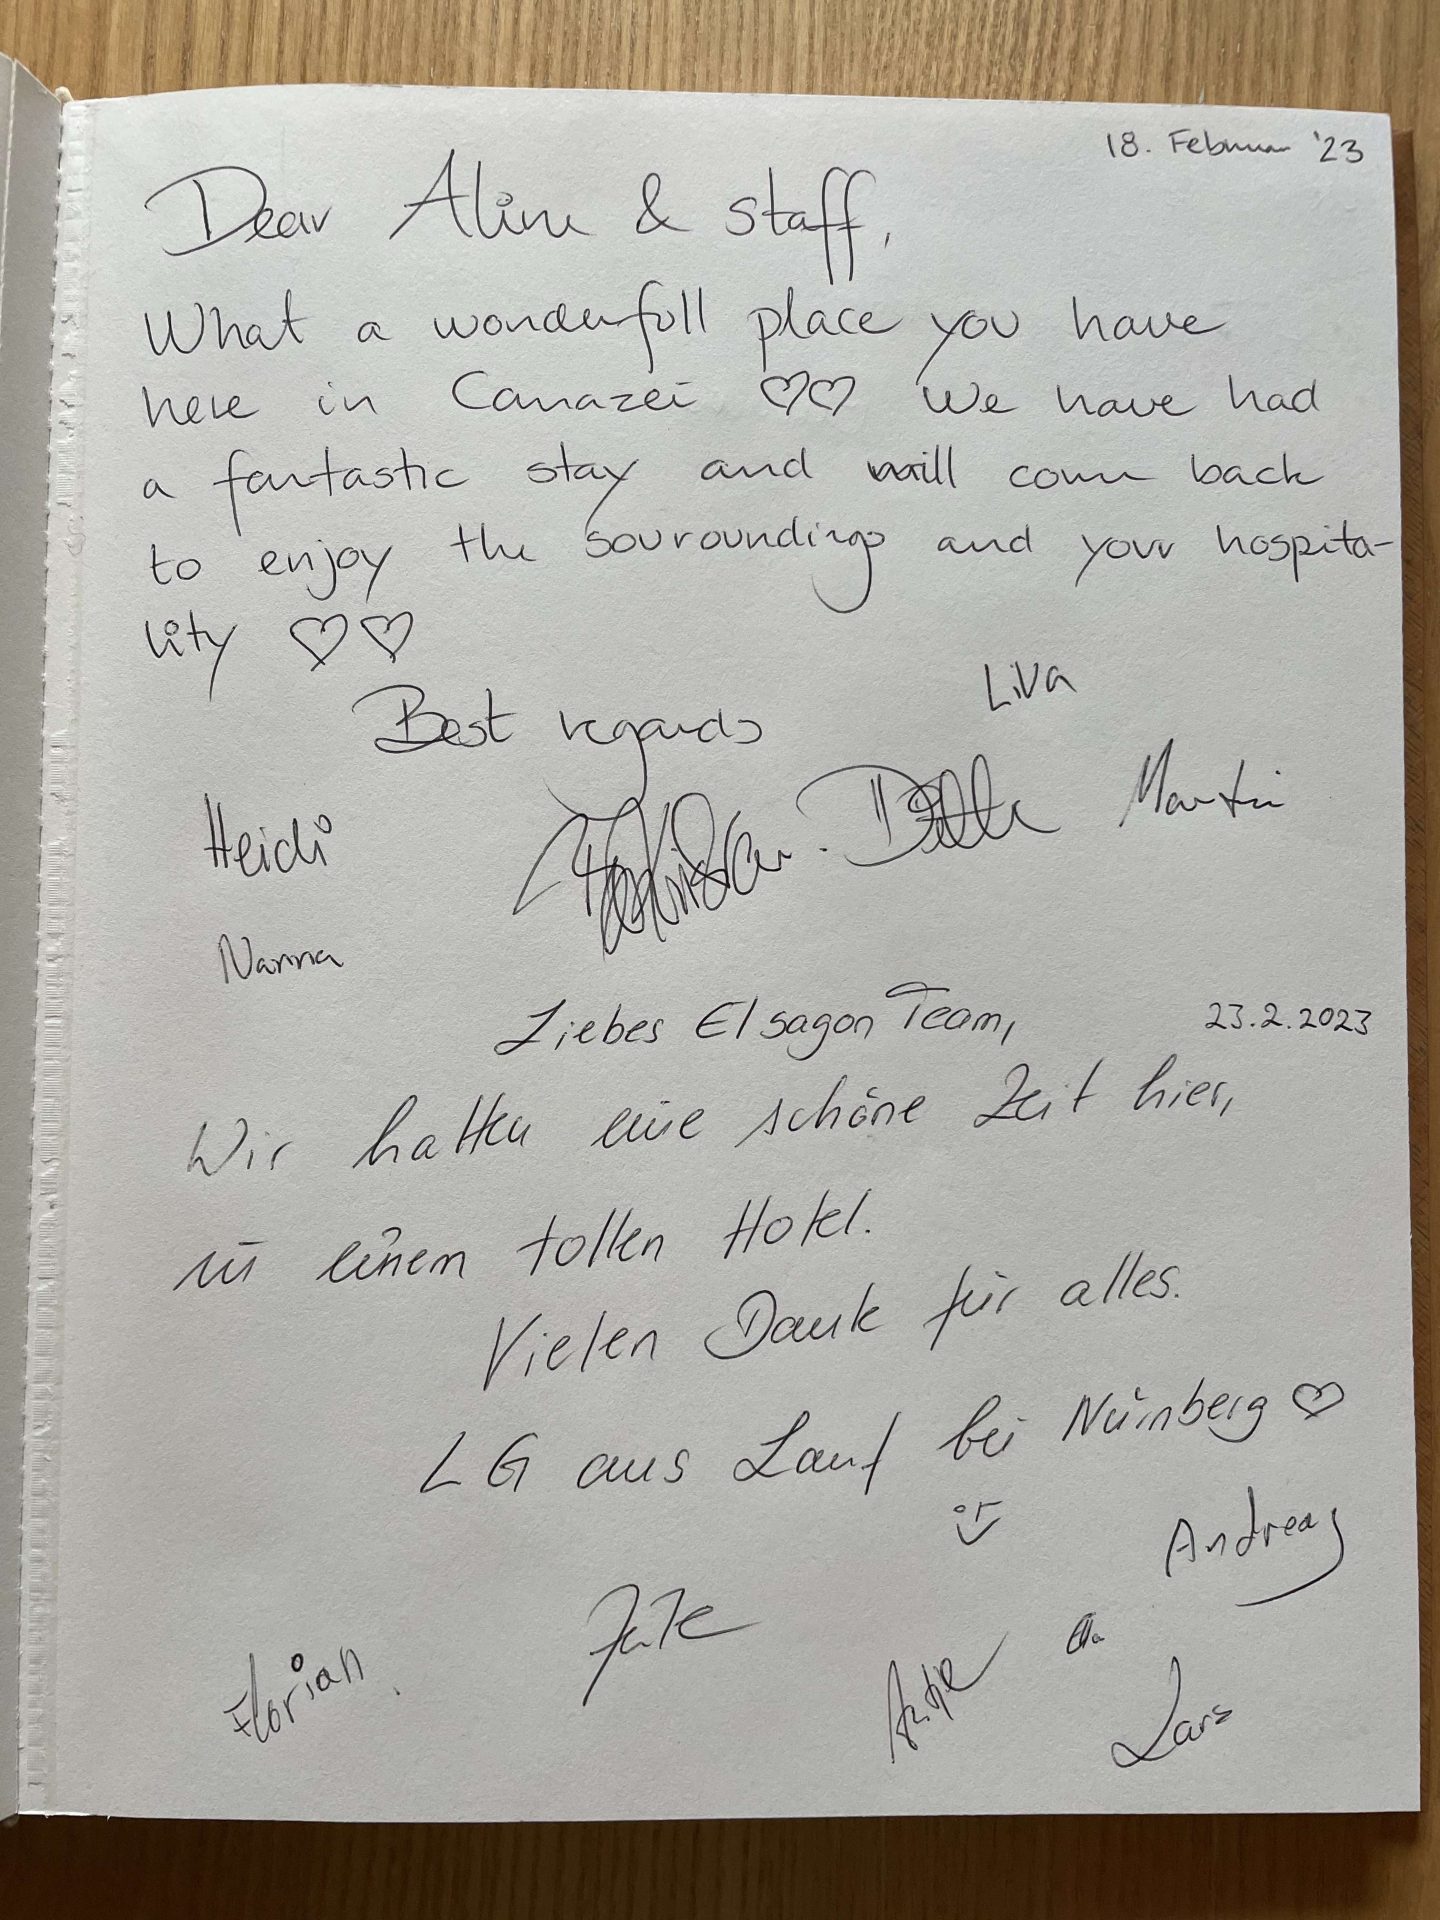 18. Februar '23
Dear Aline & staff,
What a wonderfull place you have
here in Canazei ♡♡ We have had
a fantastic stay and will come back
to enjoy the souroundings and your hospita-
lity ♡♡
Best regards
Liva
Heidi
Ditte
Martin
Nanna
Liebes El sagon Team,
23.2.2023
Wir hatten eine schöne Zeit hier,
in einem tollen Hotel.
Vielen Dank für alles.
LG aus Lauf bei Nürnberg ♡
Andreas
Florian
Antje
Lars